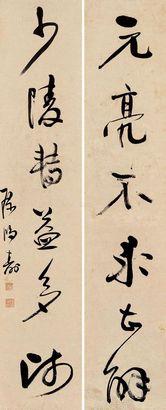 元亮不求甚解
少陵轉益多師
陳鴻壽